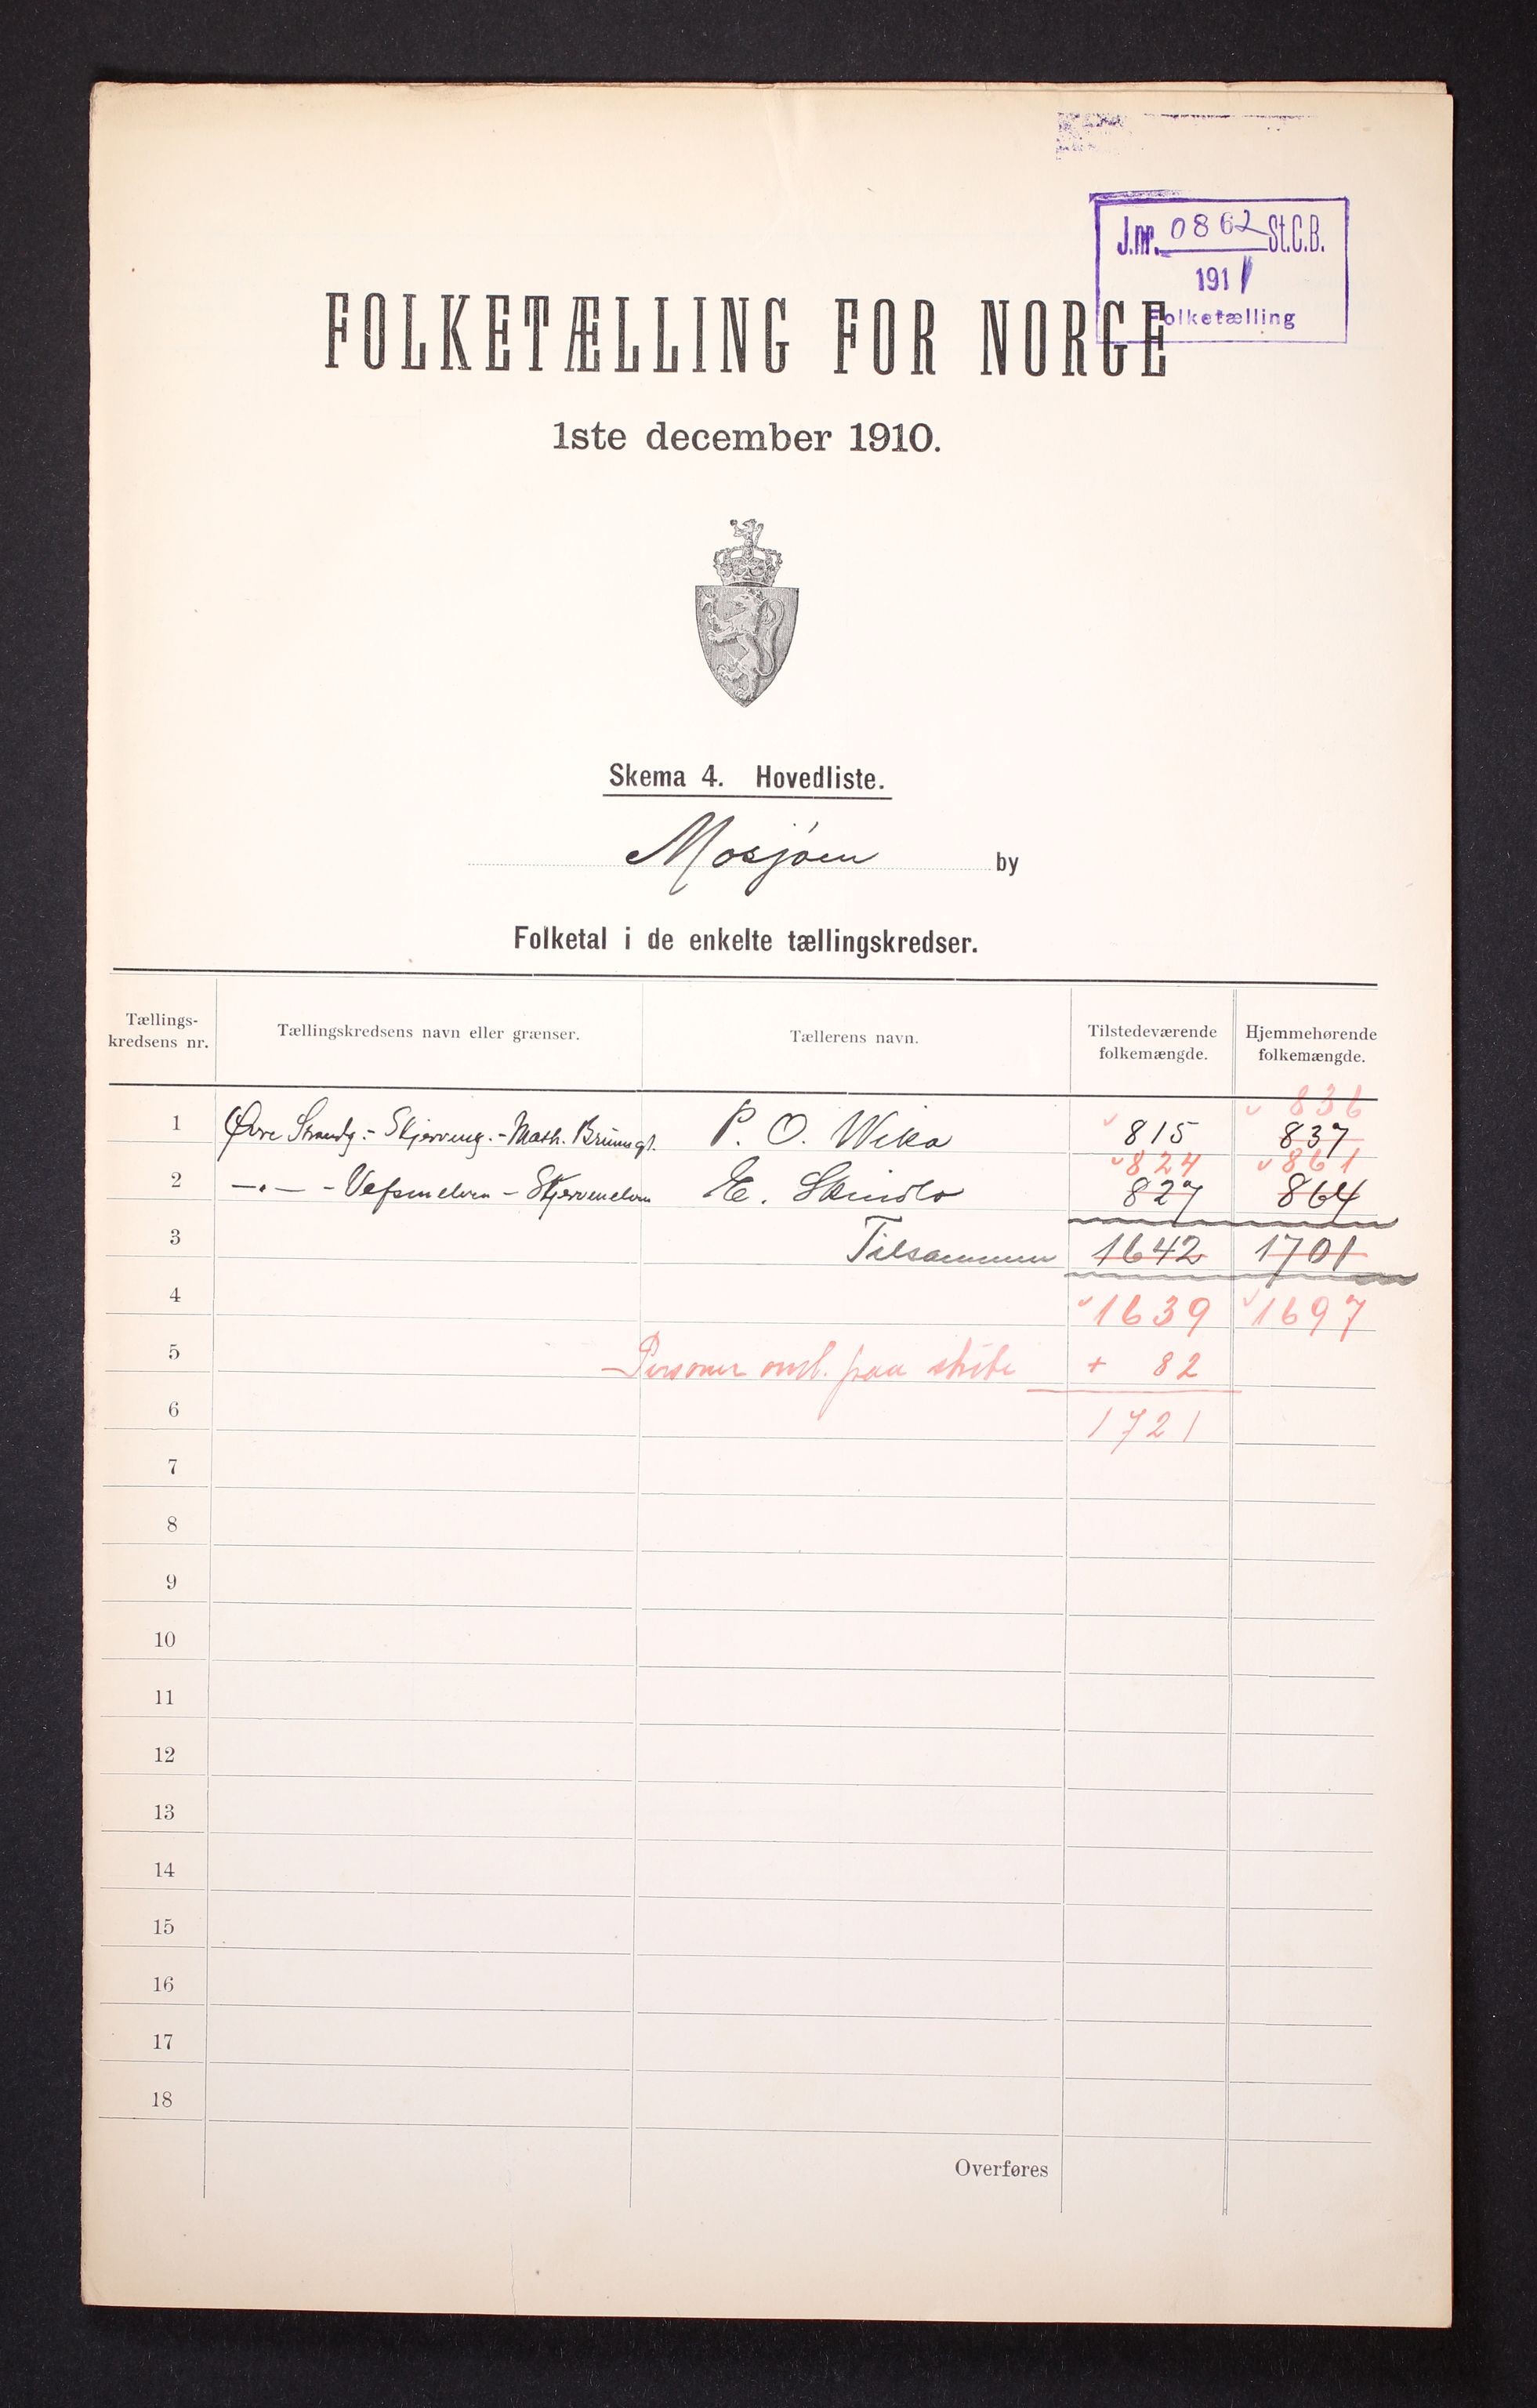 J.nr. 0862 St.C.B.
1911
Folketælling
FOLKETÆLLING FOR NORGE
1ste december 1910.
Skema 4. Hovedliste.
Mosjøen by
Folketal i de enkelte tællingskredser.
Tællings-kredsens nr. Tællingskredsens navn eller grænser. Tællerens navn. Tilstedeværende folkemængde. Hjemmehørende folkemængde.
836
1 Øvre Strandg.- Skjerveng.- Math. Bruunsgt. P. O. Wika 815 837
824 861
2 —"— - Vefsnelven - Skjervenelven E. 827 864
3 Tilsammen 1642 1701
4 1639 1697
5 Personer omb. paa skibe + 82
6 1721
7
8
9
10
11
12
13
14
15
16
17
18
Overføres